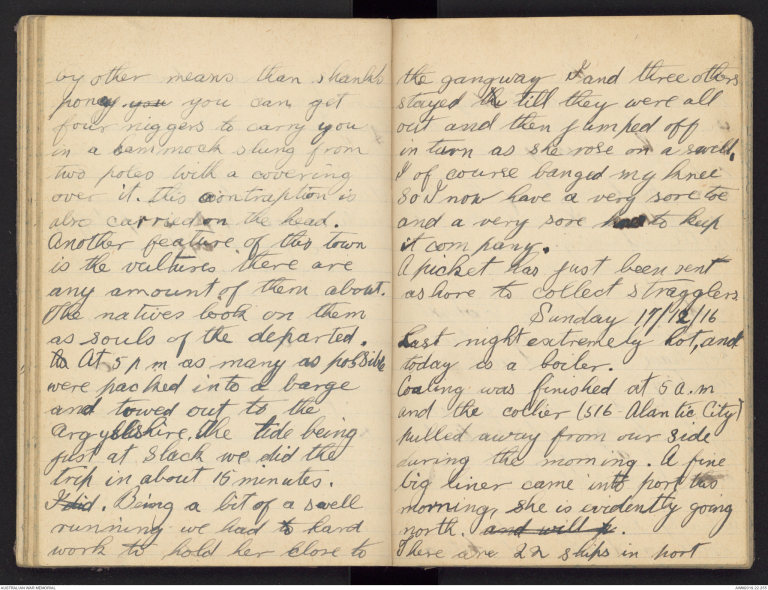 by other means than shanks
poney you you can get
four niggers to carry you
in a hammock slung from
two poles with a covering
over it. this contraption is
also carried on the head.
Another feature of this town
is the vultures there are
any amount of them about.
The natives look on them
as souls of the departed.
At 5 pm as many as possible
were packed into a barge
and towed out to the
Argyllshire. the tide being
just at slack we did the
trip in about 15 minutes.
I did. Being a bit of a swell
running we had to hard
work to hold her close to
the gangway I and three others
stayed till they were all
out and then jumped off
in turn as she rose on a swell.
I of course banged my knee
so I now have a very sore toe
and a very sore to keep
it company.
A picket has just been sent
ashore to collect stragglers
Sunday 17/12/16
Last night extremely hot, and
today is a boiler.
Coaling was finished at 5 a.m
and the collier (S16 Alantic City)
pulled away from our side
during the morning. A fine
big liner came into port this
morning, she is evidently going
north. and will
There are 22 ships in port
AUSTRALIAN WAR MEMORIAL